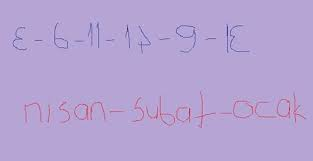 3-9-11-17-6-13
nisan-subat-ocak